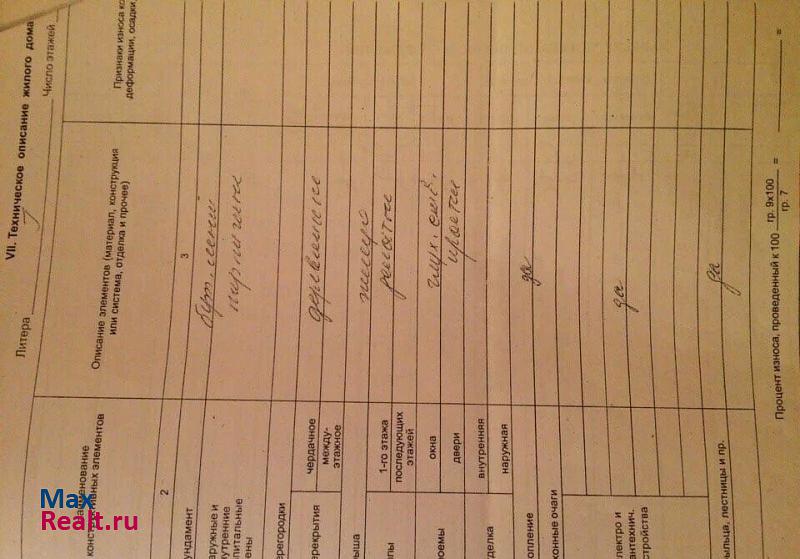 VII. Техническое описание жилого дома
Литера
Число этажей
наименование
конструктивных элементов
Описание элементов (материал, конструкция
или система, отделка и прочее)
Признаки износа
деформации, осадки,
2
3
ундамент
аружные и
утренние
питальные
ены
кирпичные
регородки
рекрытия
чердачное
между-
этажное
деревянные
ыша
шифер
лы
1-го этажа
последующих
этажей
дощатые
роемы
окна
двери
простые
делка
внутренняя
наружная
опление
да
хонные очаги
ектро и
антехнич.
стройства
да
ыльца, лестницы и пр.
да
Процент износа, проведенный к 100 гр. 9х100 = =
гр. 7
Max
Realt.ru